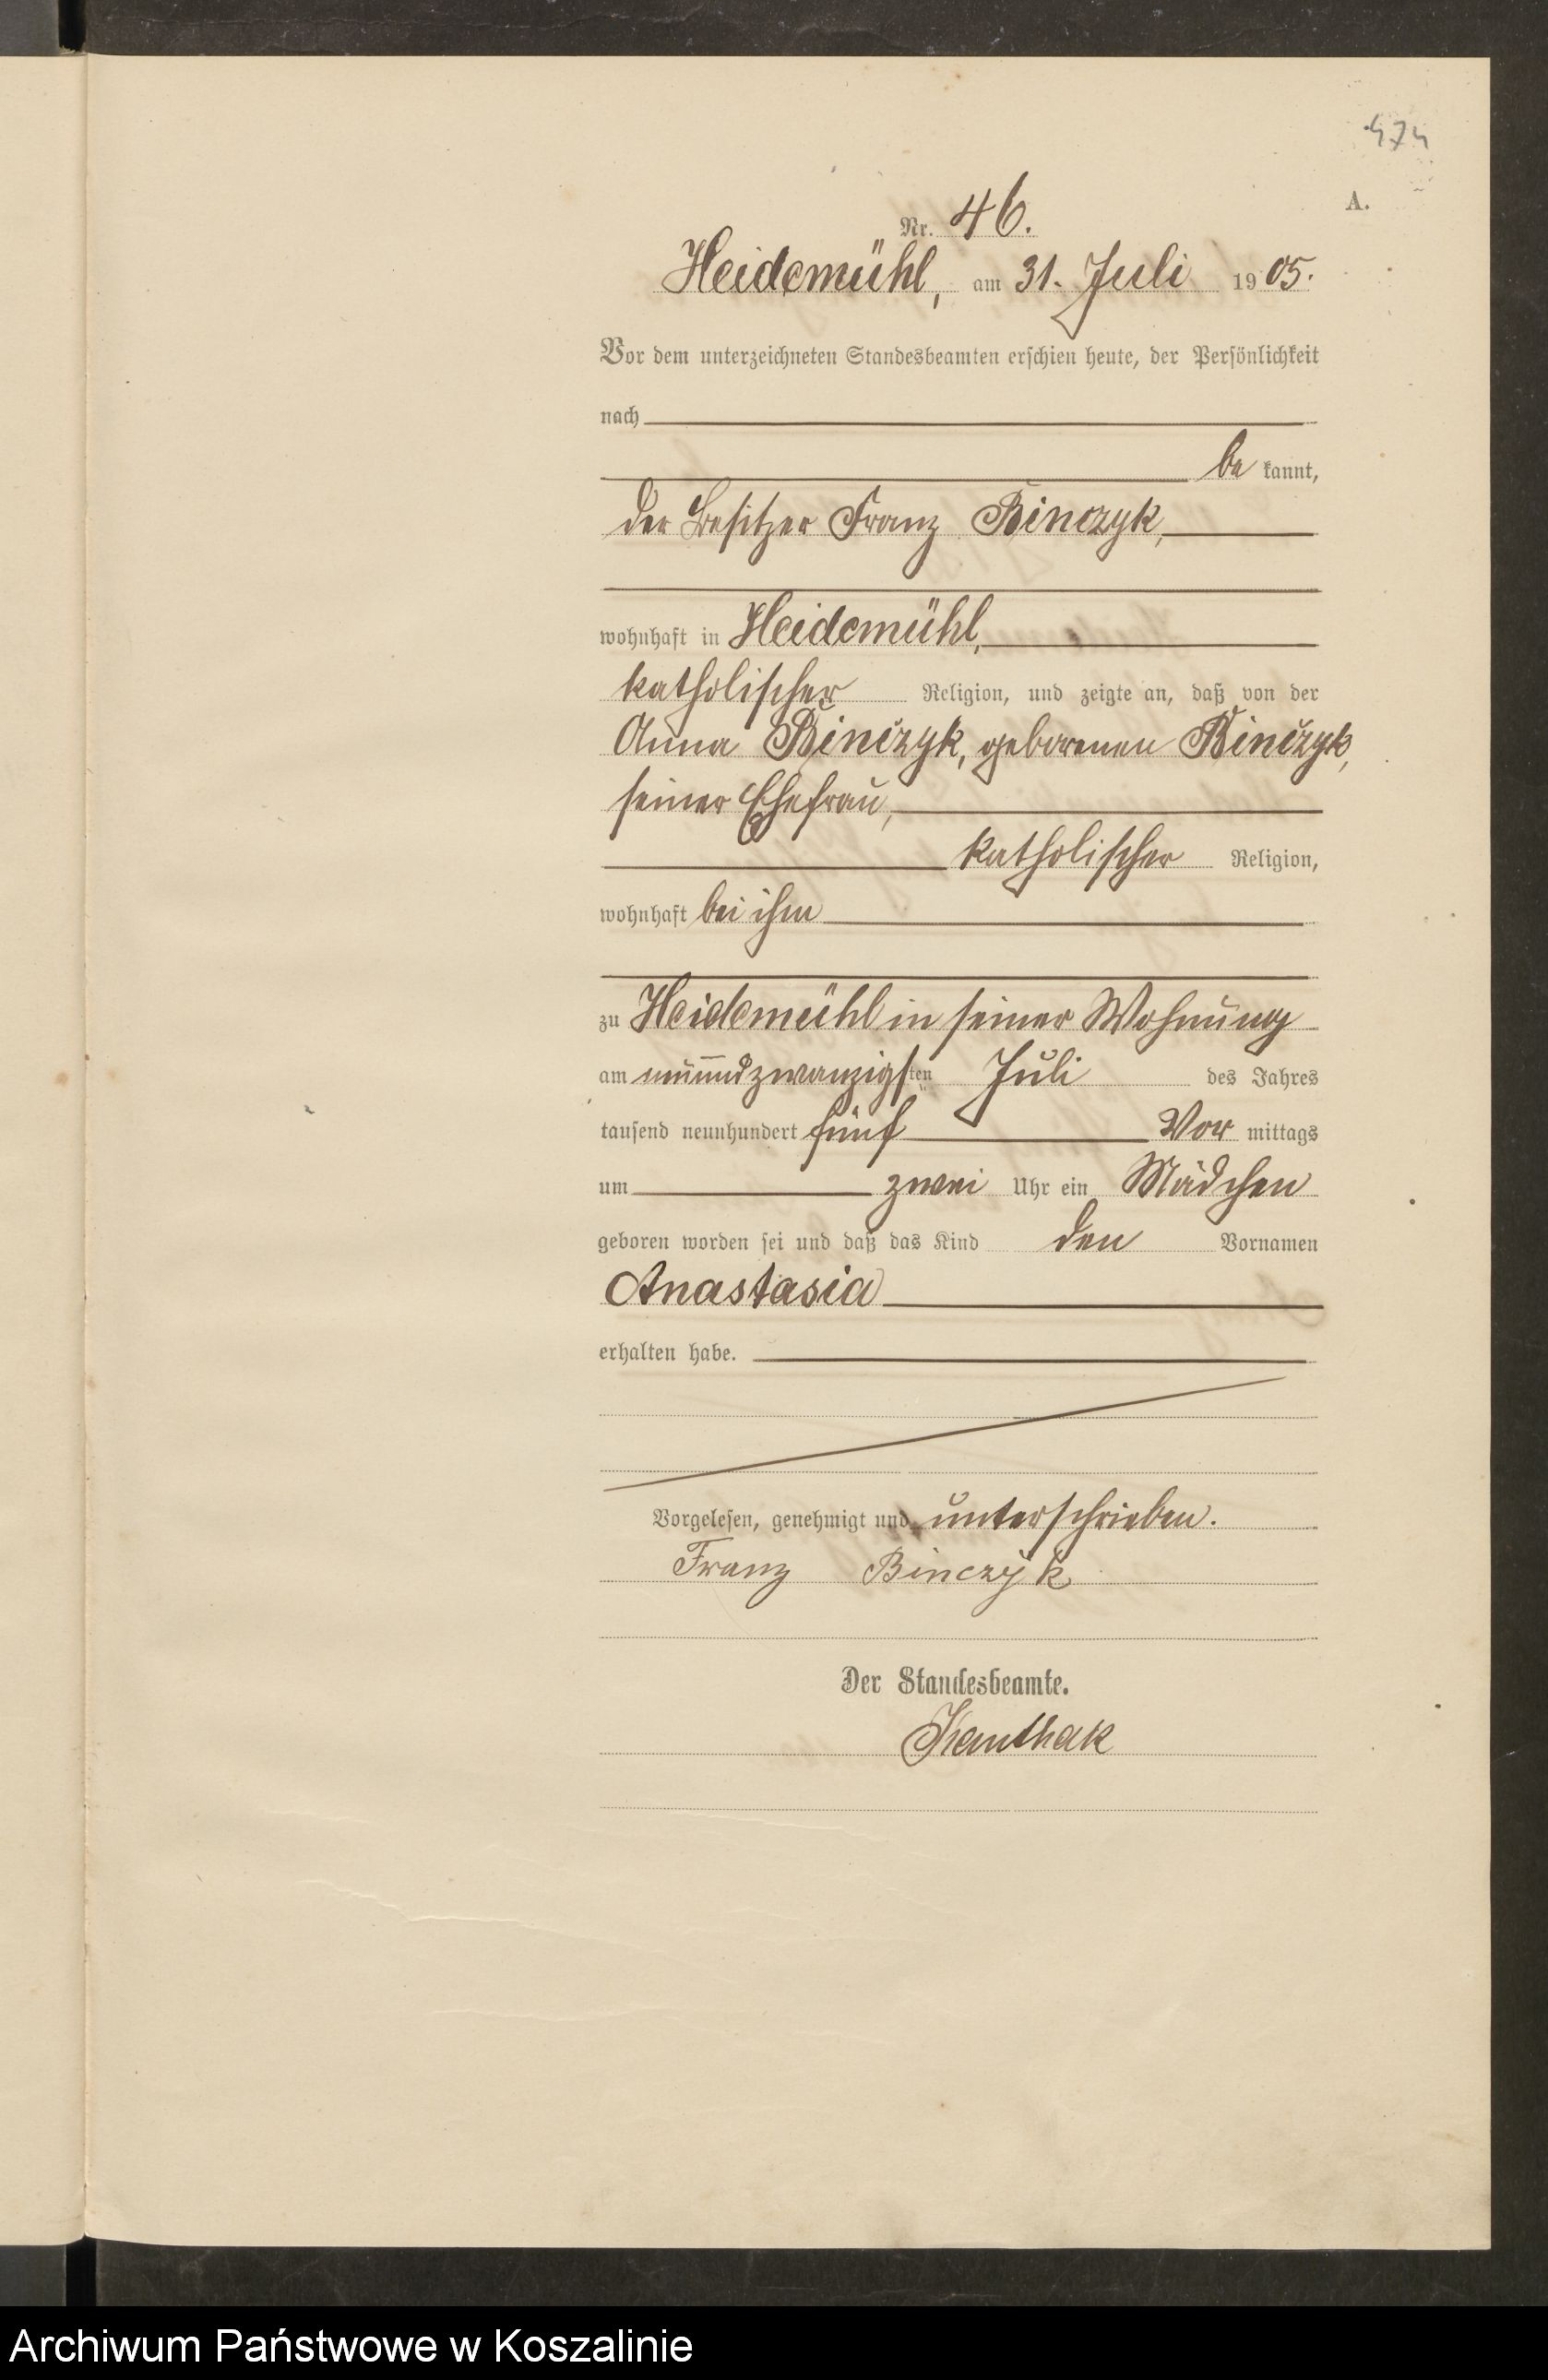 474
A.
Nr. 46.
Heidemühl, am 31. Juli 1905.
Vor dem unterzeichneten Standesbeamten erschien heute, der Persönlichkeit
nach
be kannt,
der Besitzer Franz Binczyk,
wohnhaft in Heidemühl,
katholischer Religion, und zeigte an, daß von der
Anna Binczyk, geborenen Binczyk,
seiner Ehefrau,
katholischer Religion,
wohnhaft bei ihm
zu Heidemühl in seiner Wohnung
am neunundzwanzigsten Juli des Jahres
tausend neunhundert fünf Vor mittags
um zwei Uhr ein Mädchen
geboren worden sei und daß das Kind den Vornamen
Anastasia
erhalten habe.
Vorgelesen, genehmigt und unterschrieben.
Franz Binczyk
Der Standesbeamte.
Kanthak
Archiwum Państwowe w Koszalinie